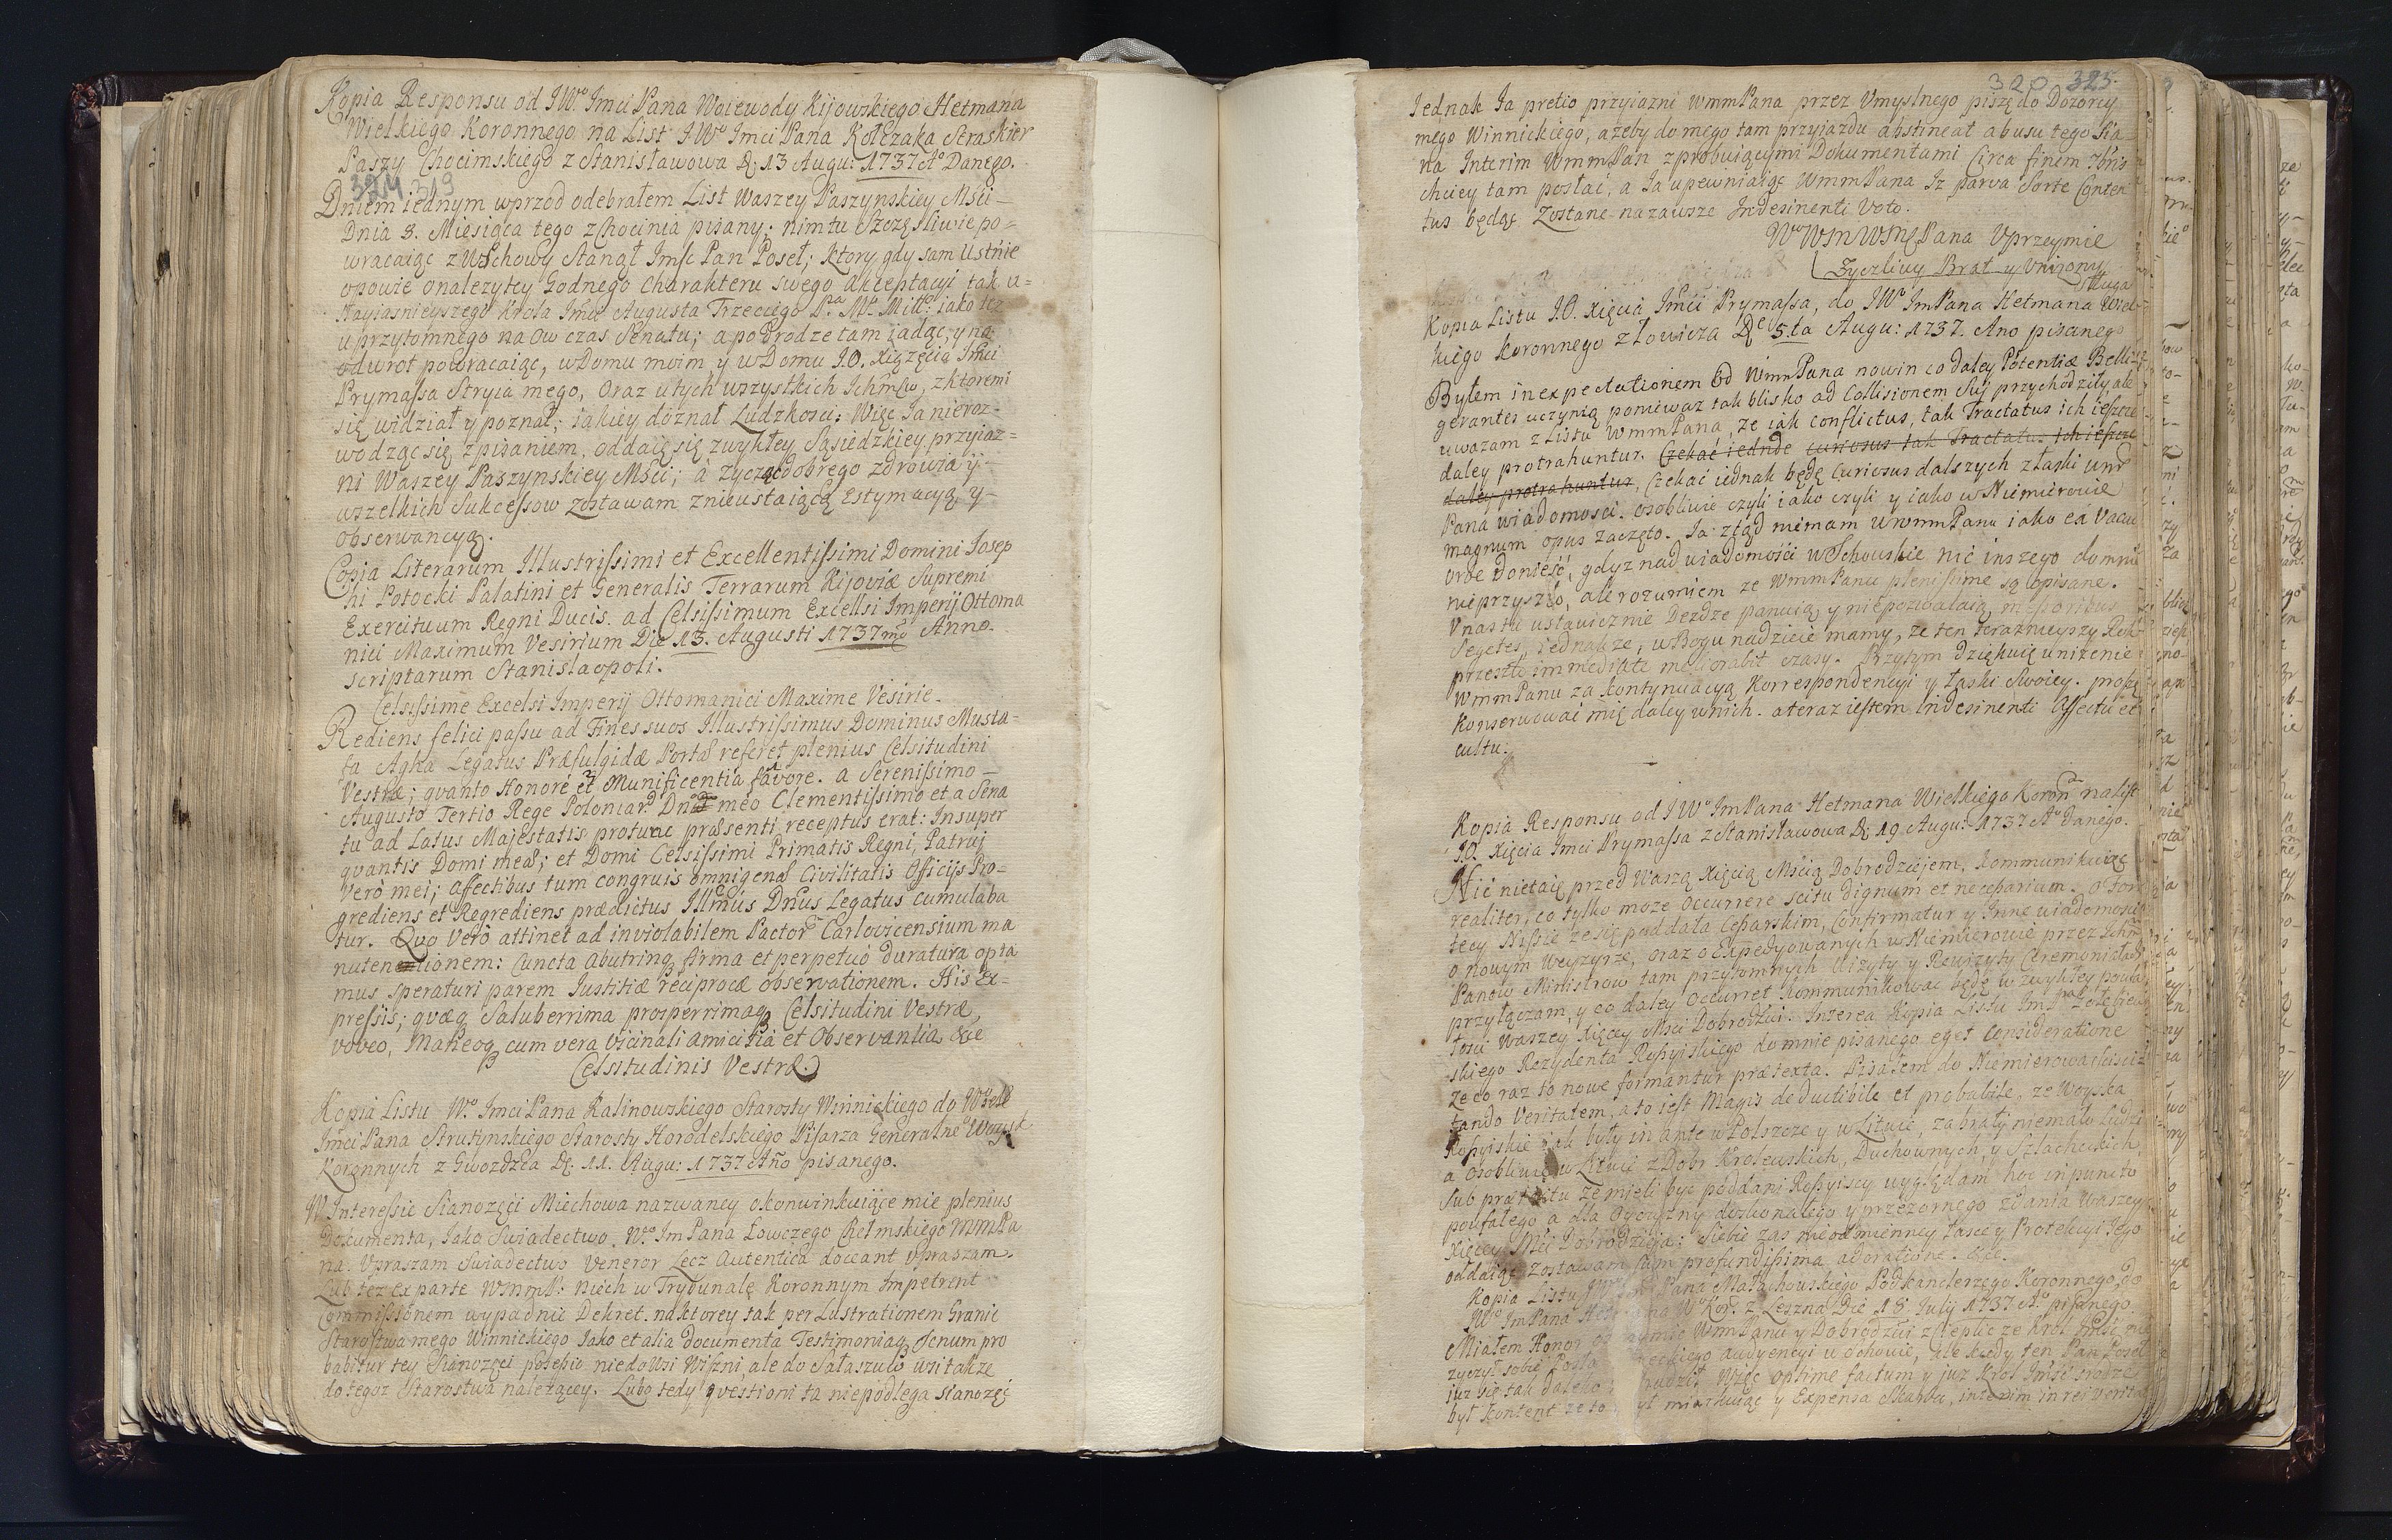 Kopia Responsu od JWo Imci Pana Woiewody Kijowskiego Hetmana
Wielkiego Koronnego na List JWo Imci Pana Kołczaka Seraskier
Paszy Chocimskiego z Stanisławowa D: 13 Augu: 1737 Ao Danego.
324 319
Dniem iednym wprzod odebrałem List Waszey Paszynskiey Mści
Dnia 3. Miesiąca tego z Chocinia pisany; nim tu Szczęśliwie po=
wracaiąc z Wschowy Stanął Imść Pan Poseł; ktory gdy sam Ustnie
opowie o nalezytey Godnego Charakteru swego Akceptacyi tak u=
Nayiasnieyszego Krola Imci Augusta Trzeciego Pa Mo Miłło: iako też
u przytomnego na ow czas Senatu; a po drodze tam iadąc, y na
odwrot powracaiąc, w Domu moim y w Domu J.O. Xiążęcia Imci
Prymassa Stryia mego, Oraz u tych wszystkich Ichmw, z ktoremi
się widział y poznał; iakiey doznał Ludzkosci; Więc Ia nieroz=
wodząc się z pisaniem, oddaię się zwykłey Sąsiedzkiey przyiaz=
ni Waszey Paszynskiey Mści; a zycząc dobrego zdrowia y
wszelkich Sukcessow zostawam z nieustaiącą Estymacyą y
obserwancyą.
Copia Literarum Illustrissimi et Excellentissimi Domini Josep
hi Potocki Palatini et Generalis Terrarum Kijoviæ Supremi
Exercituum Regni Ducis. ad Celsissimum Excelsi Imperij Ottoma
nici Maximum Vesirium Die 13. Augusti 1737mo Anno.
scriptarum Stanislaopoli.
Celsissime Excelsi Imperij Ottomanici Maxime Vesirie.
Rediens felici passu ad Fines suos Illustrissimus Dominus Musta=
fa Agha Legatus Præfulgidæ Portæ referet plenius Celsitudini
Vestræ; quanto Honore et Munificentia favore. a Serenissimo
Augusto Tertio Rege Poloniar. Dno meo Clementissimo et a Sena
tu ad Latus Majestatis protunc præsenti receptus erat: Insuper
quantis Domi meæ; et Domi Celsissimi Primatis Regni, Patrui
vero mei; affectibus tum congruis omnigenæ Civilitatis Officijs Pro=
grediens et Regrediens prædictus Illmus Dnus Legatus cumulaba
tur. Quo vero attinet ad inviolabilem Pactor Carlovicensium ma
nutentionem: Cuncta abutrinq firma et perpetuo duratura opta
mus speraturi parem Justitiæ reciprocæ observationem. His Ex=
pressis; quæq Saluberrima prosperrimaq Celsitudini Vestræ,
voveo, Maneoq cum vera vicinali amicitia et Observantia &c
Celsitudinis Vestræ.
Kopia Listu Wo Imci Pana Kalinowskiego Starosty Winnickiego do
Imci Pana Strutynskiego Starosty Horodelskiego Pisarza Generalne Woysk
Koronnych z Gwozdzca D: 11. Augu: 1737 Año pisanego.
W Interessie Sianozęci Miechowa nazwaney o konwinkuiące mie plenius
Documenta, Iako Swiadectwo Wo Im Pana Łowczego Chełmskiego WmmPa
na. Upraszam Swiadectwo Veneror Lecz Autentica doceant upraszam.
Lub tez ex parte Wmmk: niech w Trybunale Koronnym Impetrent
Commissionem wypadnie Dekret. na ktorey tak per Lustrationem Granic
Starostwa mego Winnickiego Iako et alia documenta Testimoniaq Senum pro
babitur tey Sianozęci położenie nie do Wsi Wiszni, ale do Sałaszuw wsi takze
do tegoz Starostwa należącey. Lubo tedy quæstioni ta niepodlega Sianozęć
320 325.
Jednak Ia pretio przyiazni WmmPana przez Umyslnego piszę do Dozorcy
mego Winnickiego, azeby do mego tam przyiazdu abstineat ab usu tego Sia
na Interim WmmPan z probuiącymi Dokumentami Circa finem 7bris
chciey tam posłać, a Ia upewniaiąc WmmPana Iz parva Sorte Conten
tus będąc Zostanę nazawsze Indesinenti Voto.
WoWmWmPana Uprzeymie
Zyczliwy Brat y Unizony
Sługa
Kopia Listu J.O. Xięcia Imci Prymassa, do JWo ImPana Hetmana Wiel
kiego Koronnego z Łowicza D: 5ta Augu: 1737. Ano pisanego
Byłem in expectationem od WmmPana nowin co daley Potentiæ Belli
gerantes uczynią poniewaz tak blisko ad Collisionem Suj przychodziły, ale
uwazam z Listu WmmPana, ze iak conflictus, tak Tractatus ich ieszcze
daley protrahuntur. Czekać iednak curiosus tak Tractatus ich ieszcze
daley protrahuntur, Czekać iednak będę Curiosus dalszych z łaski Wmm
Pana wiadomosci. osobliwie czyli iako czyli y iako w Niemirowie
magnum opus zaczęto. Ia ztąd niemam WmmPanu iako ex vacuo
orbe donieść, gdyz nad wiadomości w Schowskie nic inszego do mnie
nieprzyszło, ale rozumiem ze WmmPanu plenissime są opisane.
U nas tu ustawicznie Deszcze panuią y niepozwalaią
Segetes, iednakze, w Bogu nadzieie mamy, ze ten teraznieyszy
przeszłe immediate meliorabit czasy. Przytym dziękuię unizenie
WmmPanu za kontynuacyą Korrespondencyi y łaski Swoiey. proszę
Konserwować mię daley w nich. a teraz iestem Indesinenti Affectu et
cultu.
Kopia Responsu od JWo ImPana Hetmana Wielkiego Koron na list
J.O. Xięcia Imci Prymassa z Stanisławowa D: 19 Augu: 1737 Ao Danego.
Nic nietaię przed Waszą Xięcią Mścią Dobrodzieiem, Kommunikuiąc
realiter, co tylko moze occurrere scitu dignum et necessarium. O For
tecy Nissie ze się poddała Cesarskim, Confirmatur y Inne wiadomosci
o nowym Wezyrze, oraz o Expedyowanych w Niemierowie przez Ichm
Panow Ministrow tam przytomnych Wizyty y Rewizyty Ceremoniałach
przyłączam, y co daley occurret kommunikować będę w zwykłey poufa
łosci Waszey Xięcey Mści Dobrodziei. Interea Kopia Listu ImPa
skiego Rezydenta Rossyiskiego do mnie pisanego eget Consideratione
ze co raz to nowe formantur prætexta. Pisałem do Niemierowa
tando Veritatem, a to iest Magis deductibile et probabile, ze Woyska
Rossyiskie iak były in ante w Polszcze y w Litwie, zabrały niemało Ludzi
a osobliwie w Litwie z Dobr Krolewskich, Duchownych, y Szlacheckich,
Sub prætextu ze mieli byc poddani Rossyiscy wyglądam hoc in puncto
poufałego a dla Oyczyzny doskonałego y przezornego zdania Waszey
Xięcey Mści Dobrodzieia: Siebie zas nieodmienney łasce y Protekcyi Jego
oddaiąc zostawam cum profundissima adoratione. &c.
Kopia Listu Pana Małachowskiego Podkanclerzego Koronnego do
JWo ImPana Wo Kor: z Leszna Die 18 Julij 1737 Ao pisanego.
Miałem Honor WmmPanu y Dobrodziei
zyczył sobie Posła Tureckiego audyencyi w Schowie, ale kiedy ten Pan Poseł
iuz się tak daleko Więc optime factum y iuz Krol Imść
był kontent ze to miarkuiąc y Expensa Skarbu, interim in rei